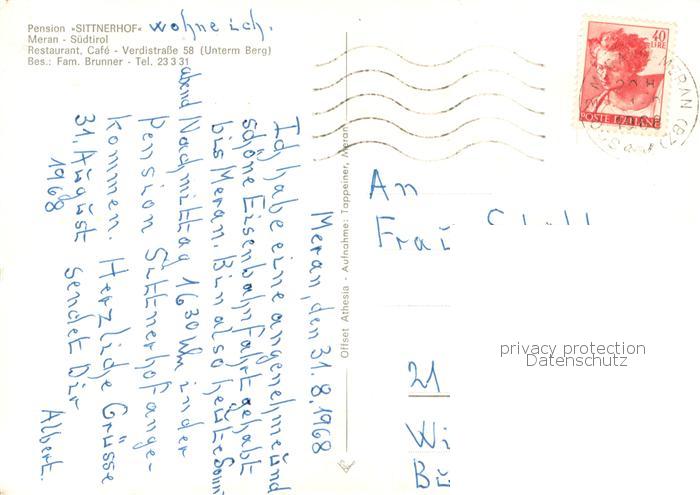 Pension »SITTNERHOF« wohne ich.
Meran - Südtirol
Restaurant, Café - Verdistraße 58 (Unterm Berg)
Bes.: Fam. Brunner - Tel. 23 3 31
Meran, den 31.8.1968
Ich habe eine angenehme und
schöne Eisenbahnfahrt gehabt
bis Meran. Bin also heute Sonn
abend Nachmittag 16 30 Uhr in der
Pension Sittnerhof ange-
kommen. Herzliche Grüsse
31. August sendet Dir
1968 Albert.
Offset Athesia - Aufnahme: Tappeiner, Meran
40
LIRE
POSTE ITALIANE
MERAN
An
Frau
21
Wi
Bü
privacy protection
Datenschutz